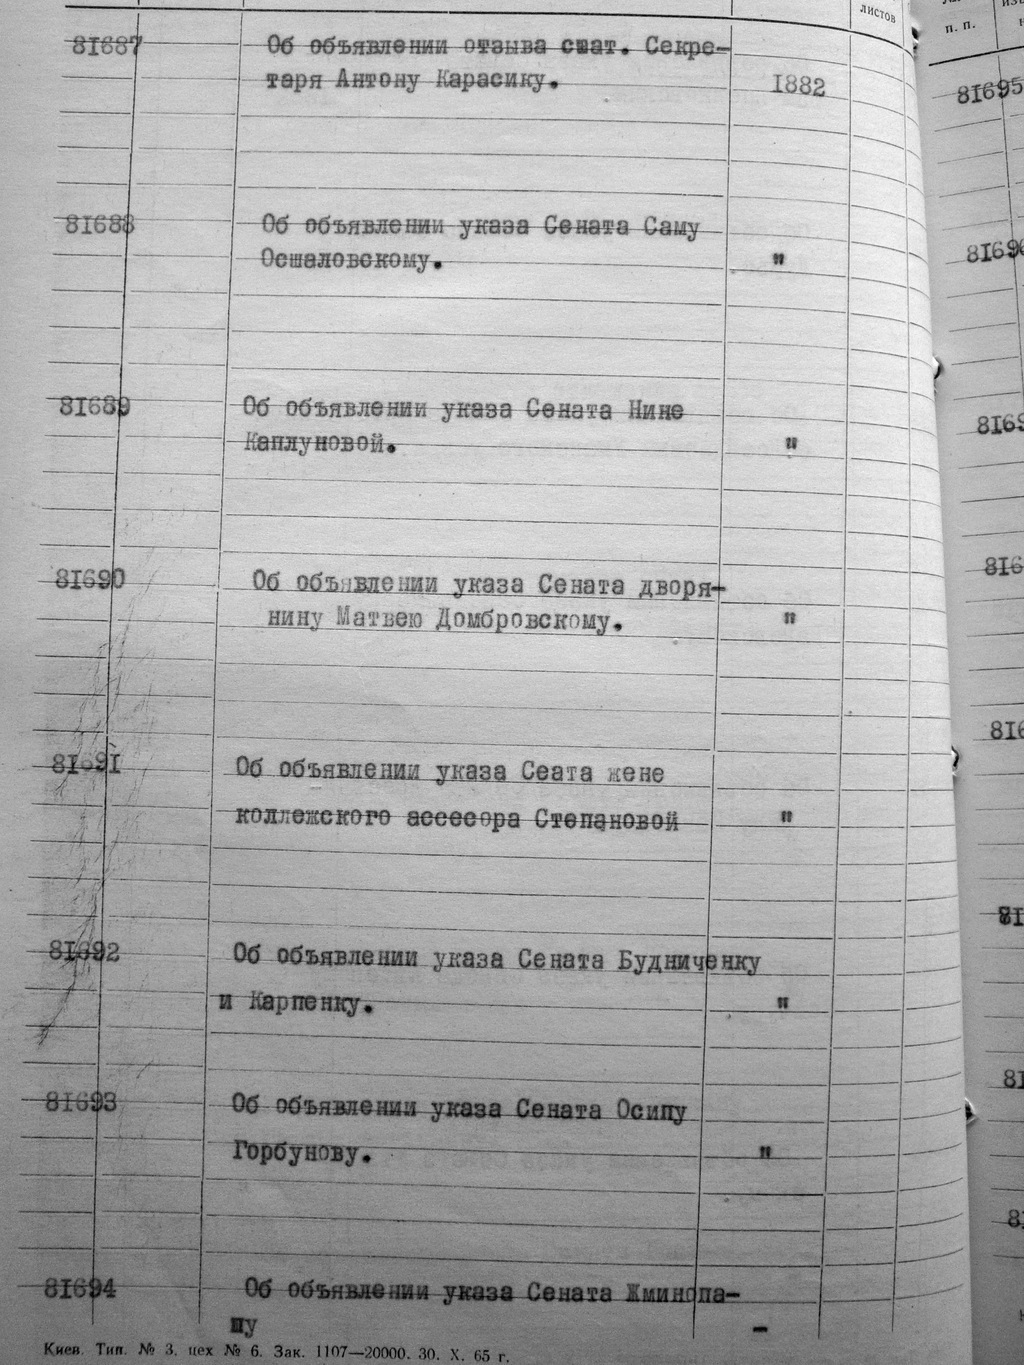 листов
п. п.
81687 Об объявлении отзыва стат. Секре-
таря Антону Карасику. 1882
81688 Об объявлении указа Сената Саму
Осшаловскому. "
81689 Об объявлении указа Сената Нине
Каплуновой. "
81690 Об объявлении указа Сената дворя-
нину Матвею Домбровскому. "
81691 Об объявлении указа Сеата жене
коллежского ассесора Степановой "
81692 Об объявлении указа Сената Будниченку
и Карпенку. "
81693 Об объявлении указа Сената Осипу
Горбунову. "
81694 Об объявлении указа Сената Жминопа-
шу -
Киев. Тип. № 3, цех № 6. Зак. 1107—20000. 30. X. 65 г.
81695